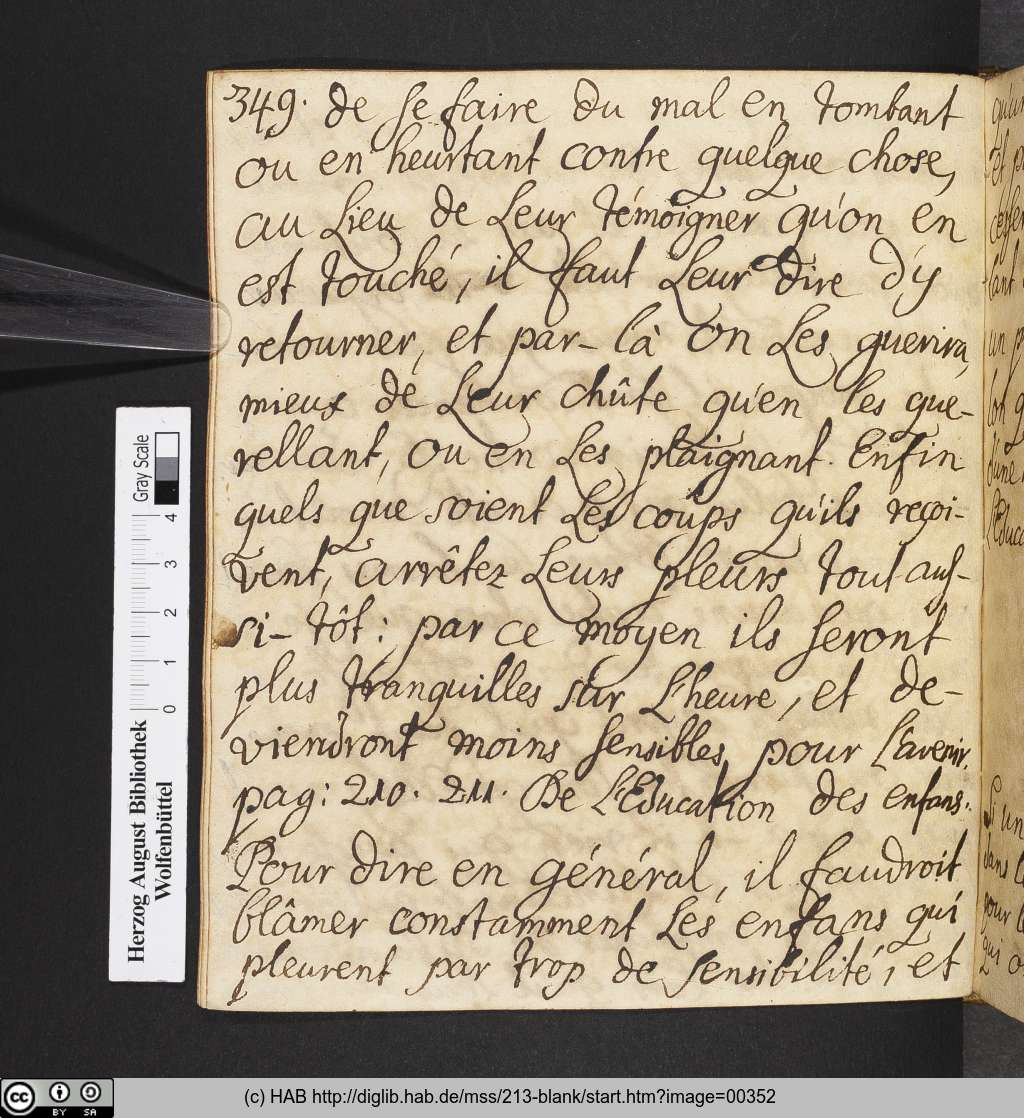 349. de se faire du mal en tombant
ou en heurtant contre quelque chose,
au Lieu de Leur témoigner qu'on en
est touché, il faut Leur dire d'y
retourner, et par-là on Les guerira
mieux de Leur chûte qu'en les que-
rellant, ou en Les plaignant. Enfin
quels que soient Les coups qu'ils reçoi-
vent, arrêtez Leurs pleurs tout auſ-
si-tôt: par ce moyen ils seront
plus tranquilles sur L'heure, et de-
viendront moins sensibles pour L'avenir.
pag: 210. 211. De L'Education des enfans.
Pour dire en général, il faudroit
blâmer constamment Les enfans qui
pleurent par trop de sensibilité, et
Herzog August Bibliothek
Wolfenbüttel
Gray Scale
0 1 2 3 4
cc BY SA
(c) HAB http://diglib.hab.de/mss/213-blank/start.htm?image=00352